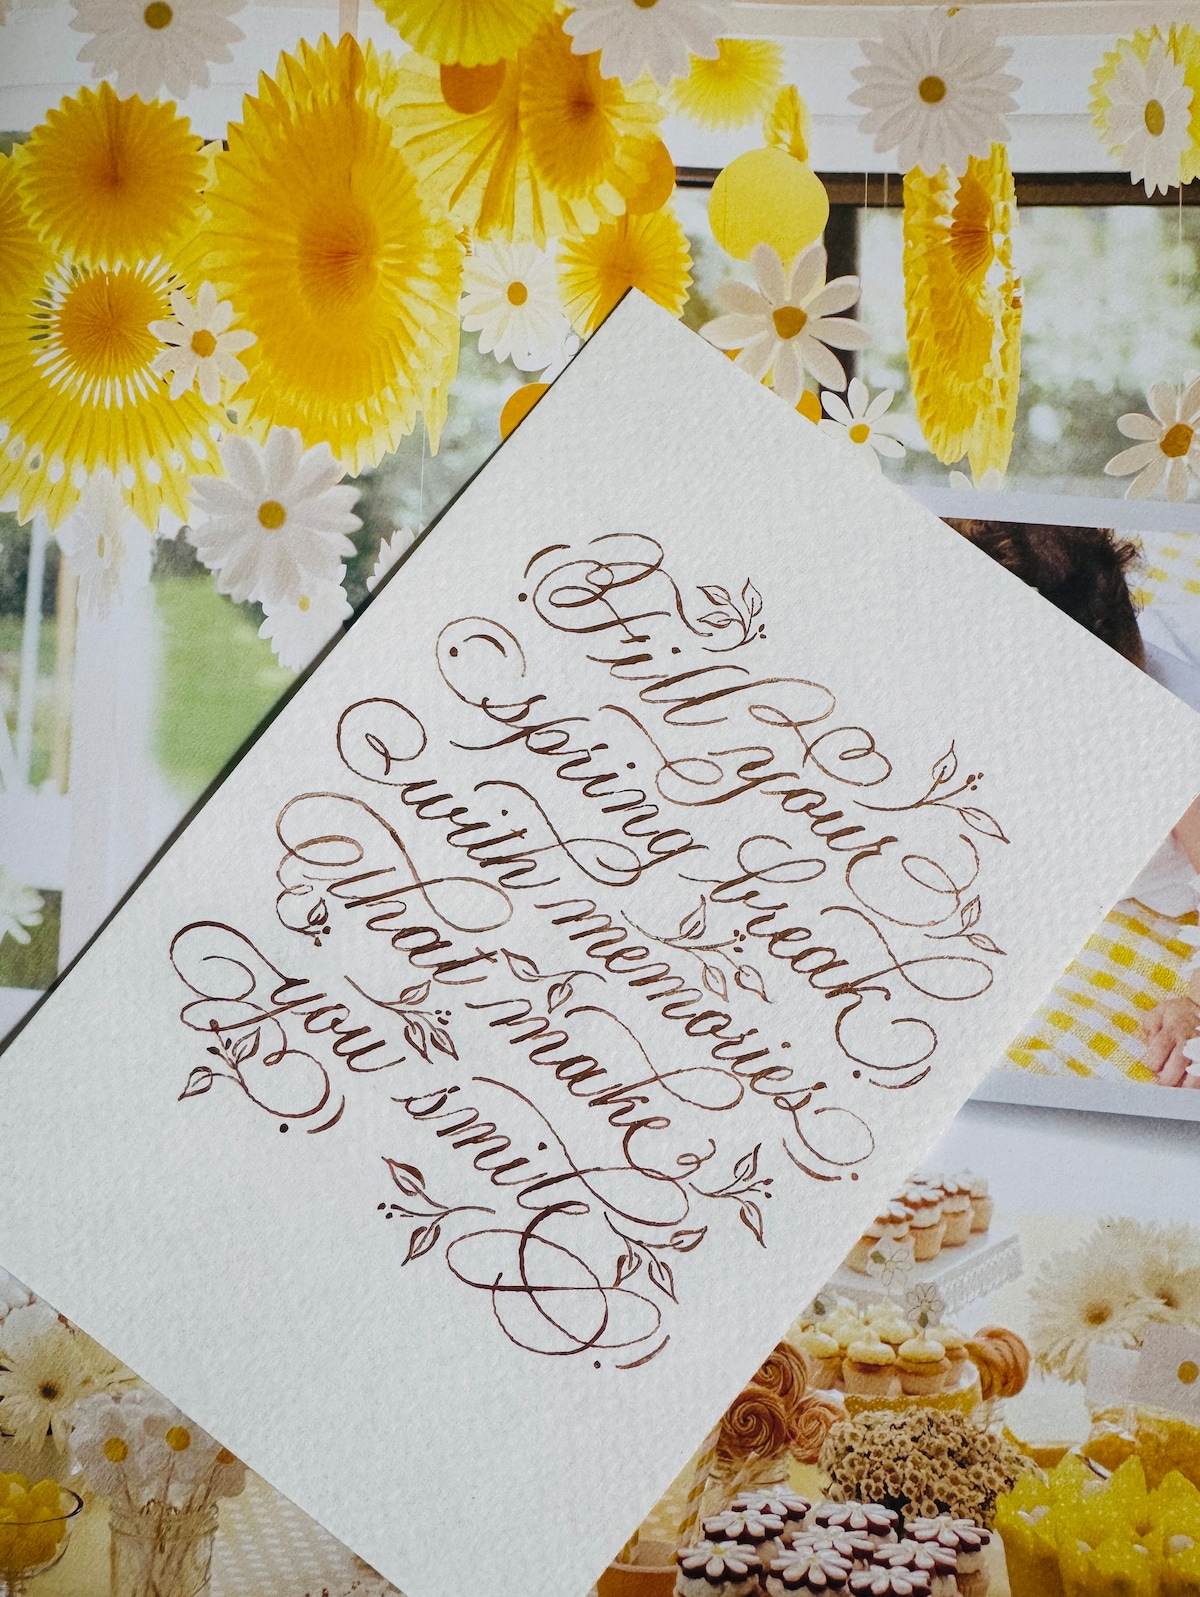 Fill your
spring break
with memories
that make
you smile